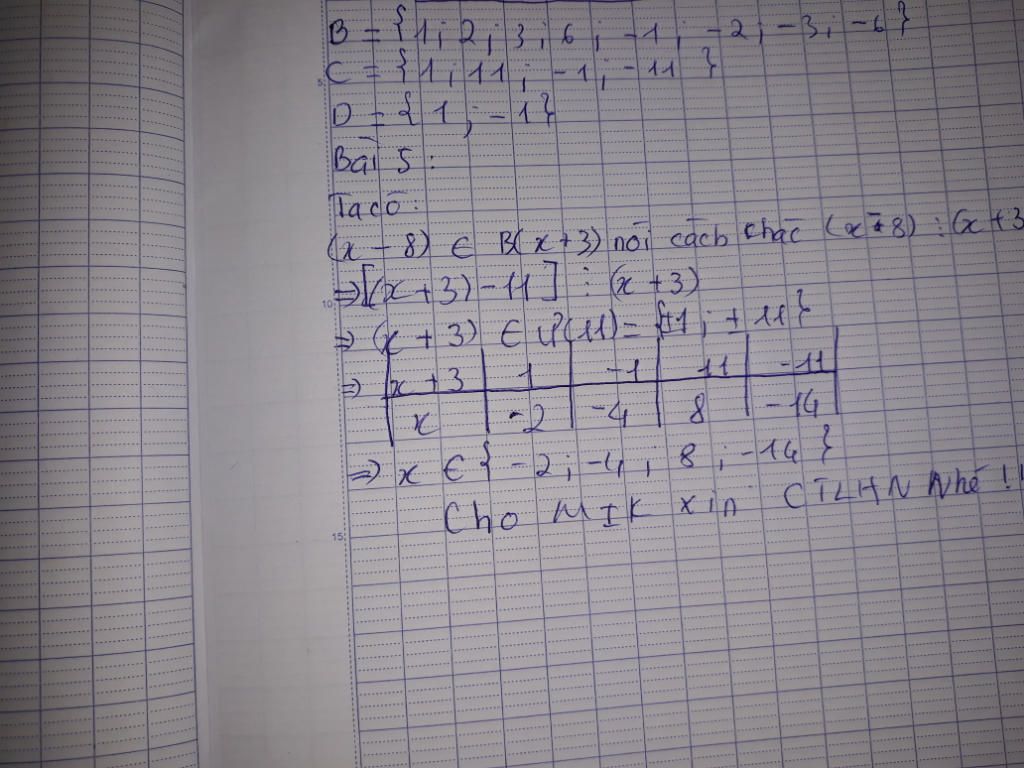 B = {1 ; 2 ; 3 ; 6 ; -1 ; -2 ; -3 ; -6}
5
C = {1 ; 11 ; -1 ; -11 }
D = { 1 ; -1}
Bài 5 :
Ta có :
(x - 8) ∈ B(x + 3) nói cách khác (x - 8) ⋮ (x + 3
10
⇒ [(x + 3) - 11] ⋮ (x + 3)
⇒ (x + 3) ∈ Ư(11) = {±1 ; ± 11}
⇒ x + 3 1 -1 11 -11
x -2 -4 8 -14
⇒ x ∈ { -2 ; -4 ; 8 ; -14 }
Cho MIK xin CTLHN Nhé !!
15